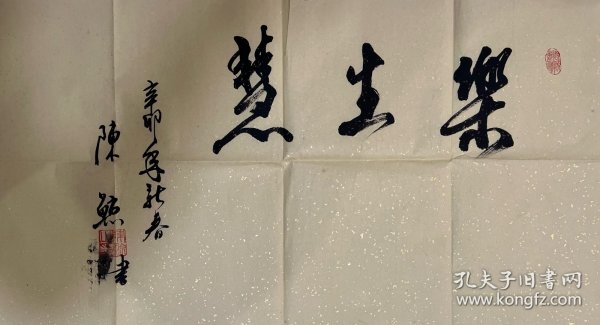 樂生慧
辛卯年新春
陳鯨書
孔夫子旧书网
www.kongfz.com